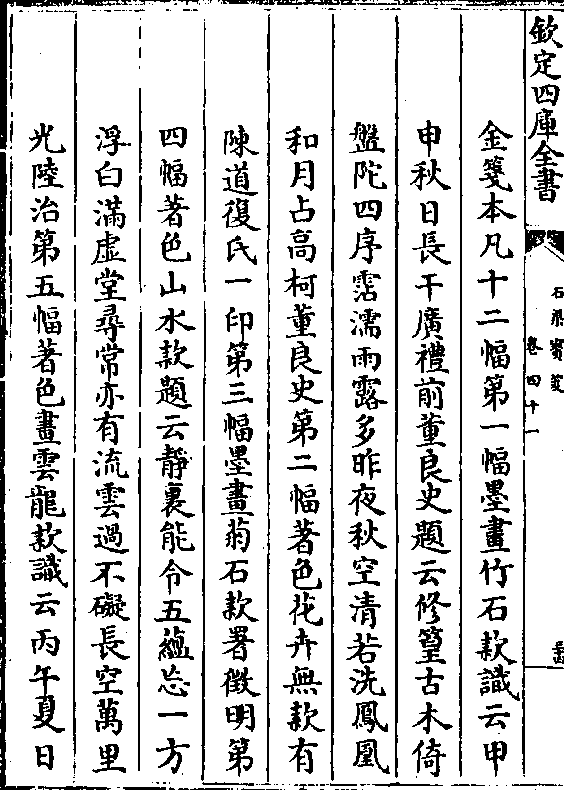 欽定四庫全書
石渠寶笈
卷四十一
金箋本凡十二幅第一幅墨畫竹石款識云甲
申秋日長干廣禮前董良史題云修篁古木倚
盤陀四序霑濡雨露多昨夜秋空清若洗鳳凰
和月占高柯董良史第二幅著色花卉無款有
陳道復氏一印第三幅墨畫菊石款署徵明第
四幅著色山水款題云靜裏能令五蘊忘一方
浮白滿虛堂尋常亦有流雲過不礙長空萬里
光陸治第五幅著色畫雲龍款識云丙午夏日